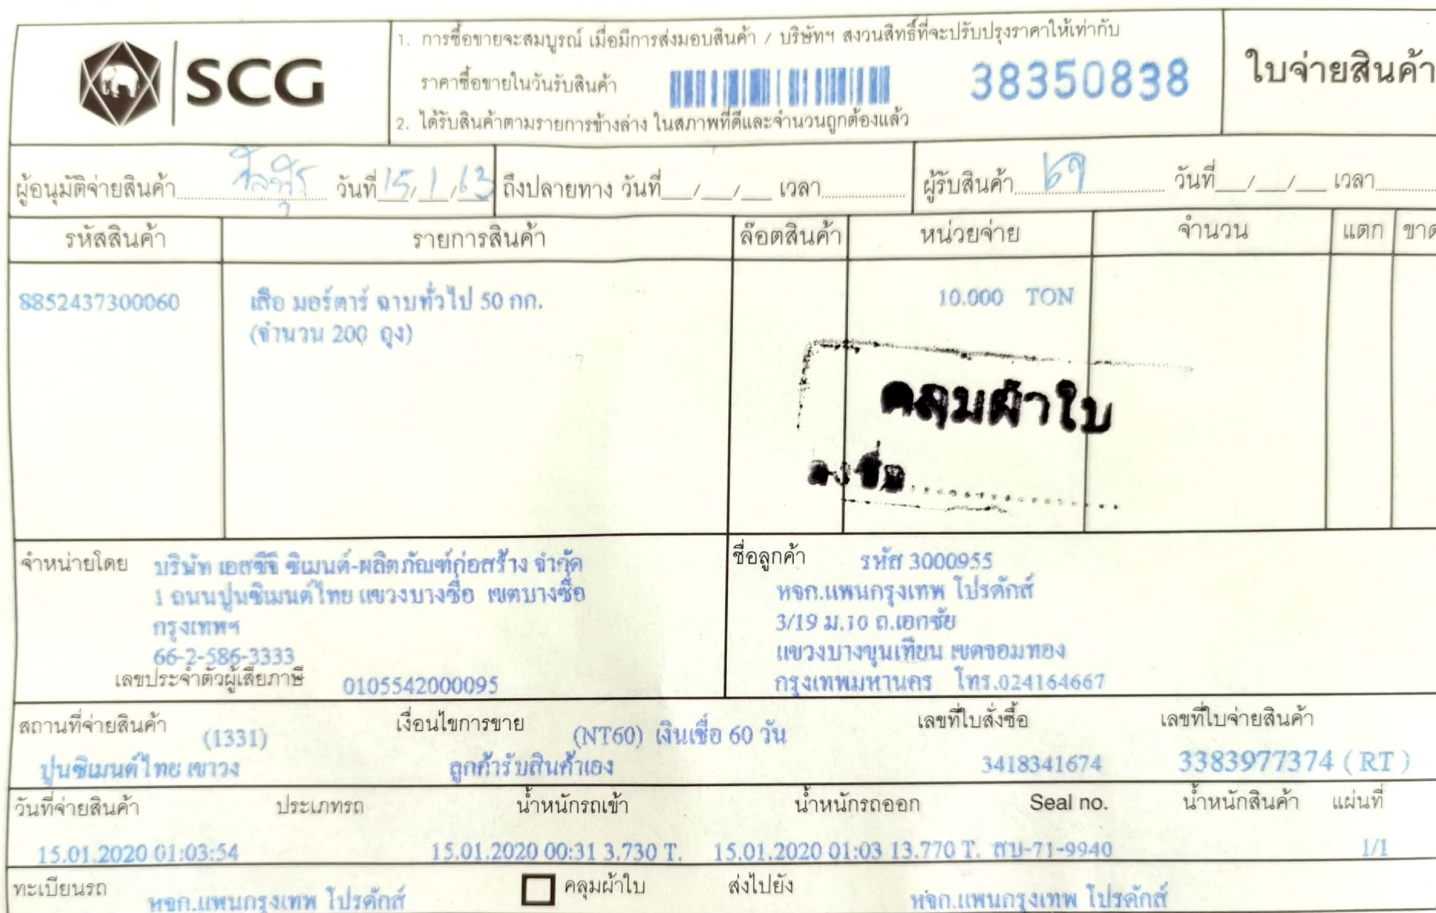 SCG
1. การซื้อขายจะสมบูรณ์ เมื่อมีการส่งมอบสินค้า / บริษัทฯ สงวนสิทธิ์ที่จะปรับปรุงราคาให้เท่ากับ
ราคาซื้อขายในวันรับสินค้า
38350838
2. ได้รับสินค้าตามรายการข้างล่าง ในสภาพที่ดีและจำนวนถูกต้องแล้ว
ใบจ่ายสินค้า
ผู้อนุมัติจ่ายสินค้า วันที่ 15/1/63 ถึงปลายทาง วันที่__/__/__ เวลา ผู้รับสินค้า วันที่__/__/__ เวลา
รหัสสินค้า รายการสินค้า ล๊อตสินค้า หน่วยจ่าย จำนวน แตก ขาด
8852437300060 เสือ มอร์ตาร์ ฉาบทั่วไป 50 กก. 10.000 TON
(จำนวน 200 ถุง)
คลุมผ้าใบ
ลงชื่อ
จำหน่ายโดย บริษัท เอสซีจี ซิเมนต์-ผลิตภัณฑ์ก่อสร้าง จำกัด
1 ถนนปูนซิเมนต์ไทย แขวงบางซื่อ เขตบางซื่อ
กรุงเทพฯ
66-2-586-3333
เลขประจำตัวผู้เสียภาษี 0105542000095
ชื่อลูกค้า รหัส 3000955
หจก.แพนกรุงเทพ โปรดักส์
3/19 ม.10 ถ.เอกชัย
แขวงบางขุนเทียน เขตจอมทอง
กรุงเทพมหานคร โทร.024164667
สถานที่จ่ายสินค้า (1331) เงื่อนไขการขาย (NT60) เงินเชื่อ 60 วัน เลขที่ใบสั่งซื้อ เลขที่ใบจ่ายสินค้า
ปูนซิเมนต์ไทย เขาวง ลูกค้ารับสินค้าเอง 3418341674 3383977374 ( RT )
วันที่จ่ายสินค้า ประเภทรถ น้ำหนักรถเข้า น้ำหนักรถออก Seal no. น้ำหนักสินค้า แผ่นที่
15.01.2020 01:03:54 15.01.2020 00:31 3.730 T. 15.01.2020 01:03 13.770 T. สบ-71-9940 1/1
ทะเบียนรถ หจก.แพนกรุงเทพ โปรดักส์ คลุมผ้าใบ ส่งไปยัง หจก.แพนกรุงเทพ โปรดักส์